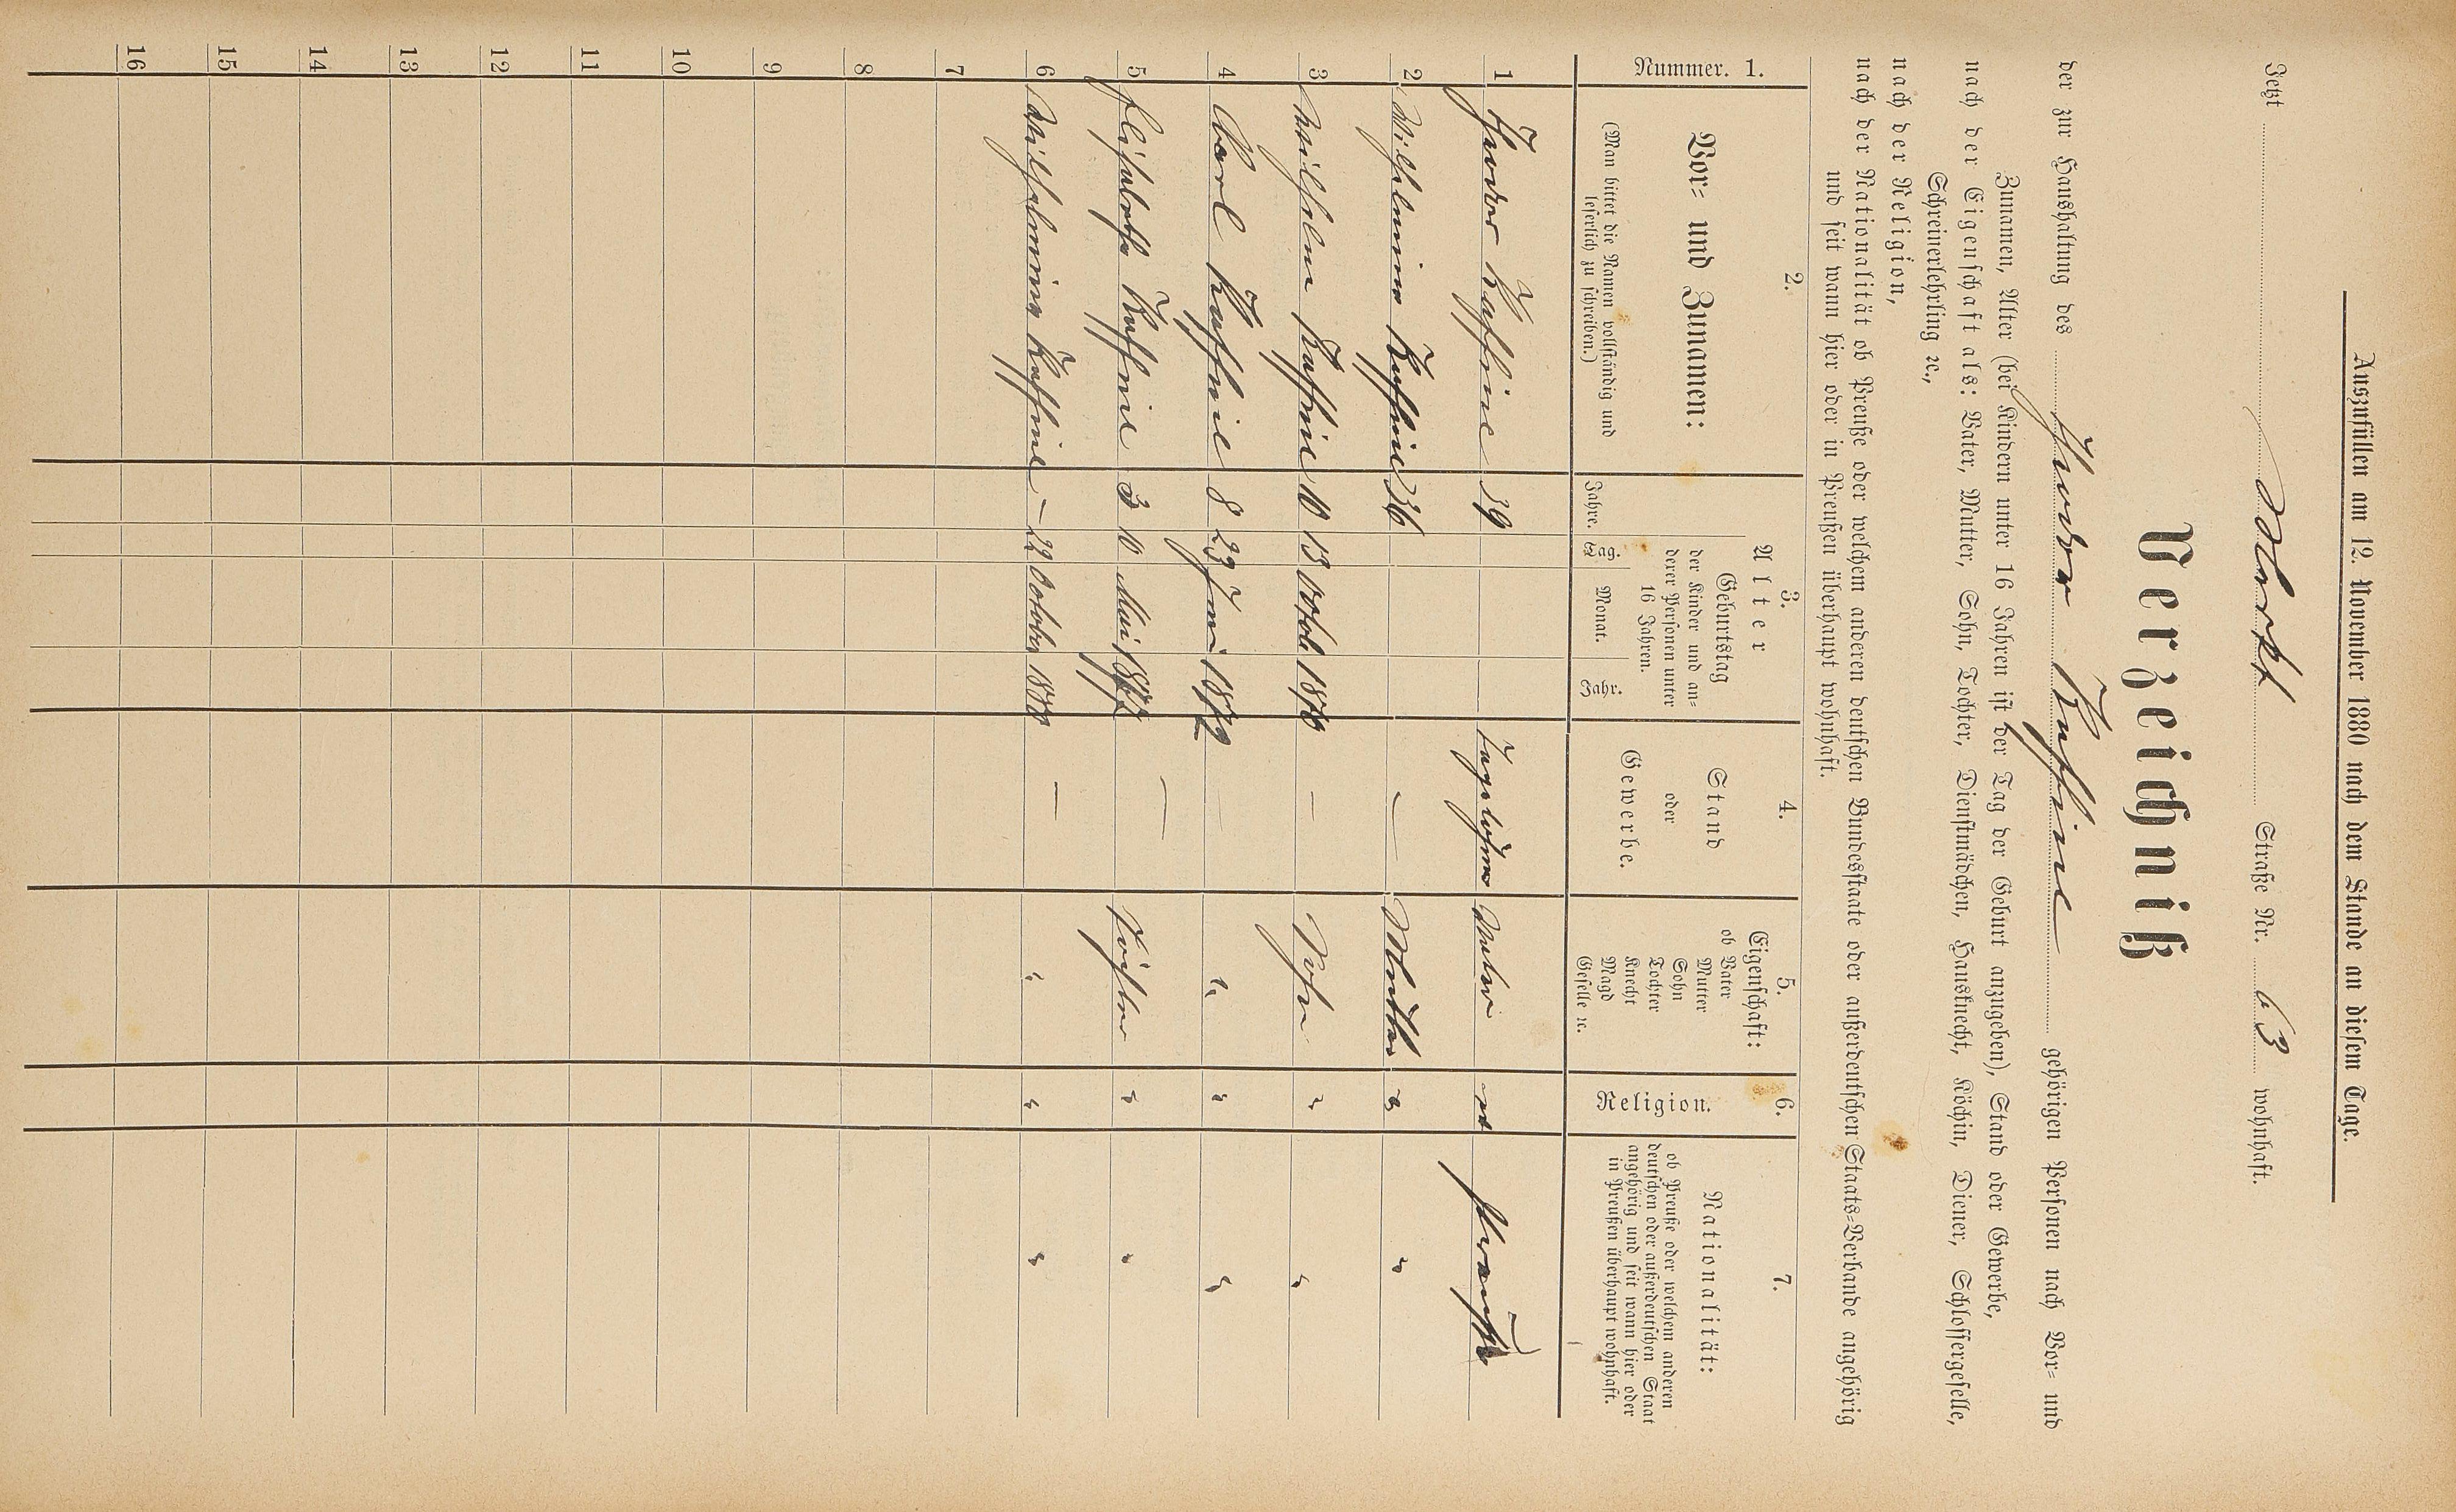 Auszufüllen am 12. November 1880 nach dem Stande an diesem Tage.
Jetzt Markt Straße Nr. 63 wohnhaft.
Verzeichniß
der zur Haushaltung des gehörigen Personen nach Vor- und
Zunamen, Alter (bei Kindern unter 16 Jahren ist der Tag der Geburt anzugeben), Stand oder Gewerbe,
nach der Eigenschaft als: Vater, Mutter, Sohn, Tochter, Dienstmädchen, Hausknecht, Köchin, Diener, Schlossergeselle,
Schreinerlehrling ꝛc.,
nach der Religion,
nach der Nationalität ob Preuße oder welchem anderen deutschen Bundesstaate oder außerdeutschen Staats-Verbande angehörig
und seit wann hier oder in Preußen überhaupt wohnhaft.
Nummer. 1.
2.
Vor- und Zunamen:
(Man bittet die Namen vollständig und
leserlich zu schreiben.)
3.
Alter
Geburtstag
der Kinder und an-
derer Personen unter
16 Jahren.
Jahre. Tag. Monat. Jahr.
4.
Stand
oder
Gewerbe.
5.
Eigenschaft:
ob Vater
Mutter
Sohn
Tochter
Knecht
Magd
Geselle ꝛc.
6.
Religion.
7.
Nationalität:
ob Preuße oder welchem anderen
deutschen oder außerdeutschen Staat
angehörig und seit wann hier oder
in Preußen überhaupt wohnhaft.
1 39 Tagelöhner Vater Preuße
2 36 — Mutter " "
3 Wilhelm 10 13 1870 — Sohn " "
4 Carl 8 29 Juni 1872 — " " "
5 Elisabeth 3 10 Mai 1877 — Tochter " "
6 Wilhelmina — 22 October 1880 — " " "
7
8
9
10
11
12
13
14
15
16